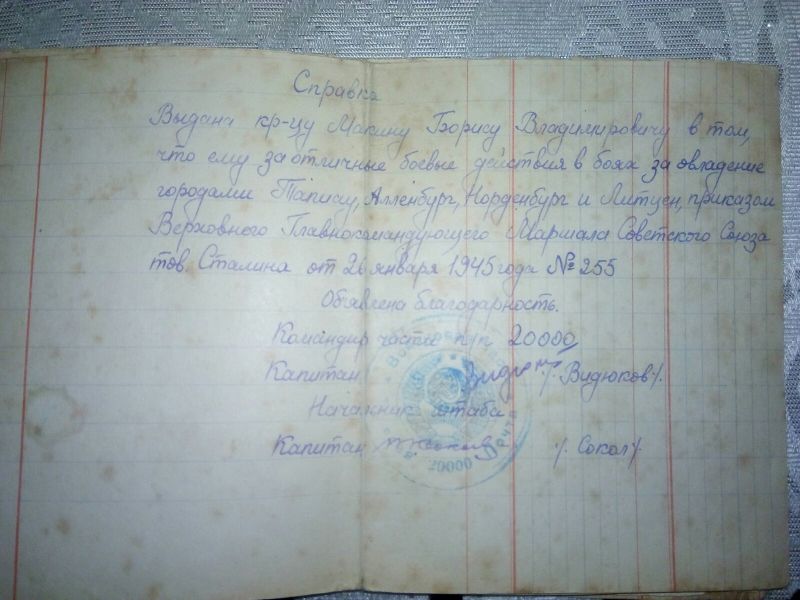 Справка
Выдана кр-цу Макину Борису Владимировичу в том,
что ему за отличные боевые действия в боях за овладение
городами Тапиау, Алленбург, Норденбург и Литцен, приказом
Верховного Главнокомандующего Маршала Советского Союза
тов. Сталина от 26 января 1945 года № 255
Объявлена благодарность.
Командир части п/п 20000
Капитан /. Видюков /.
Начальник штаба
Капитан /. Сокол /.
20000